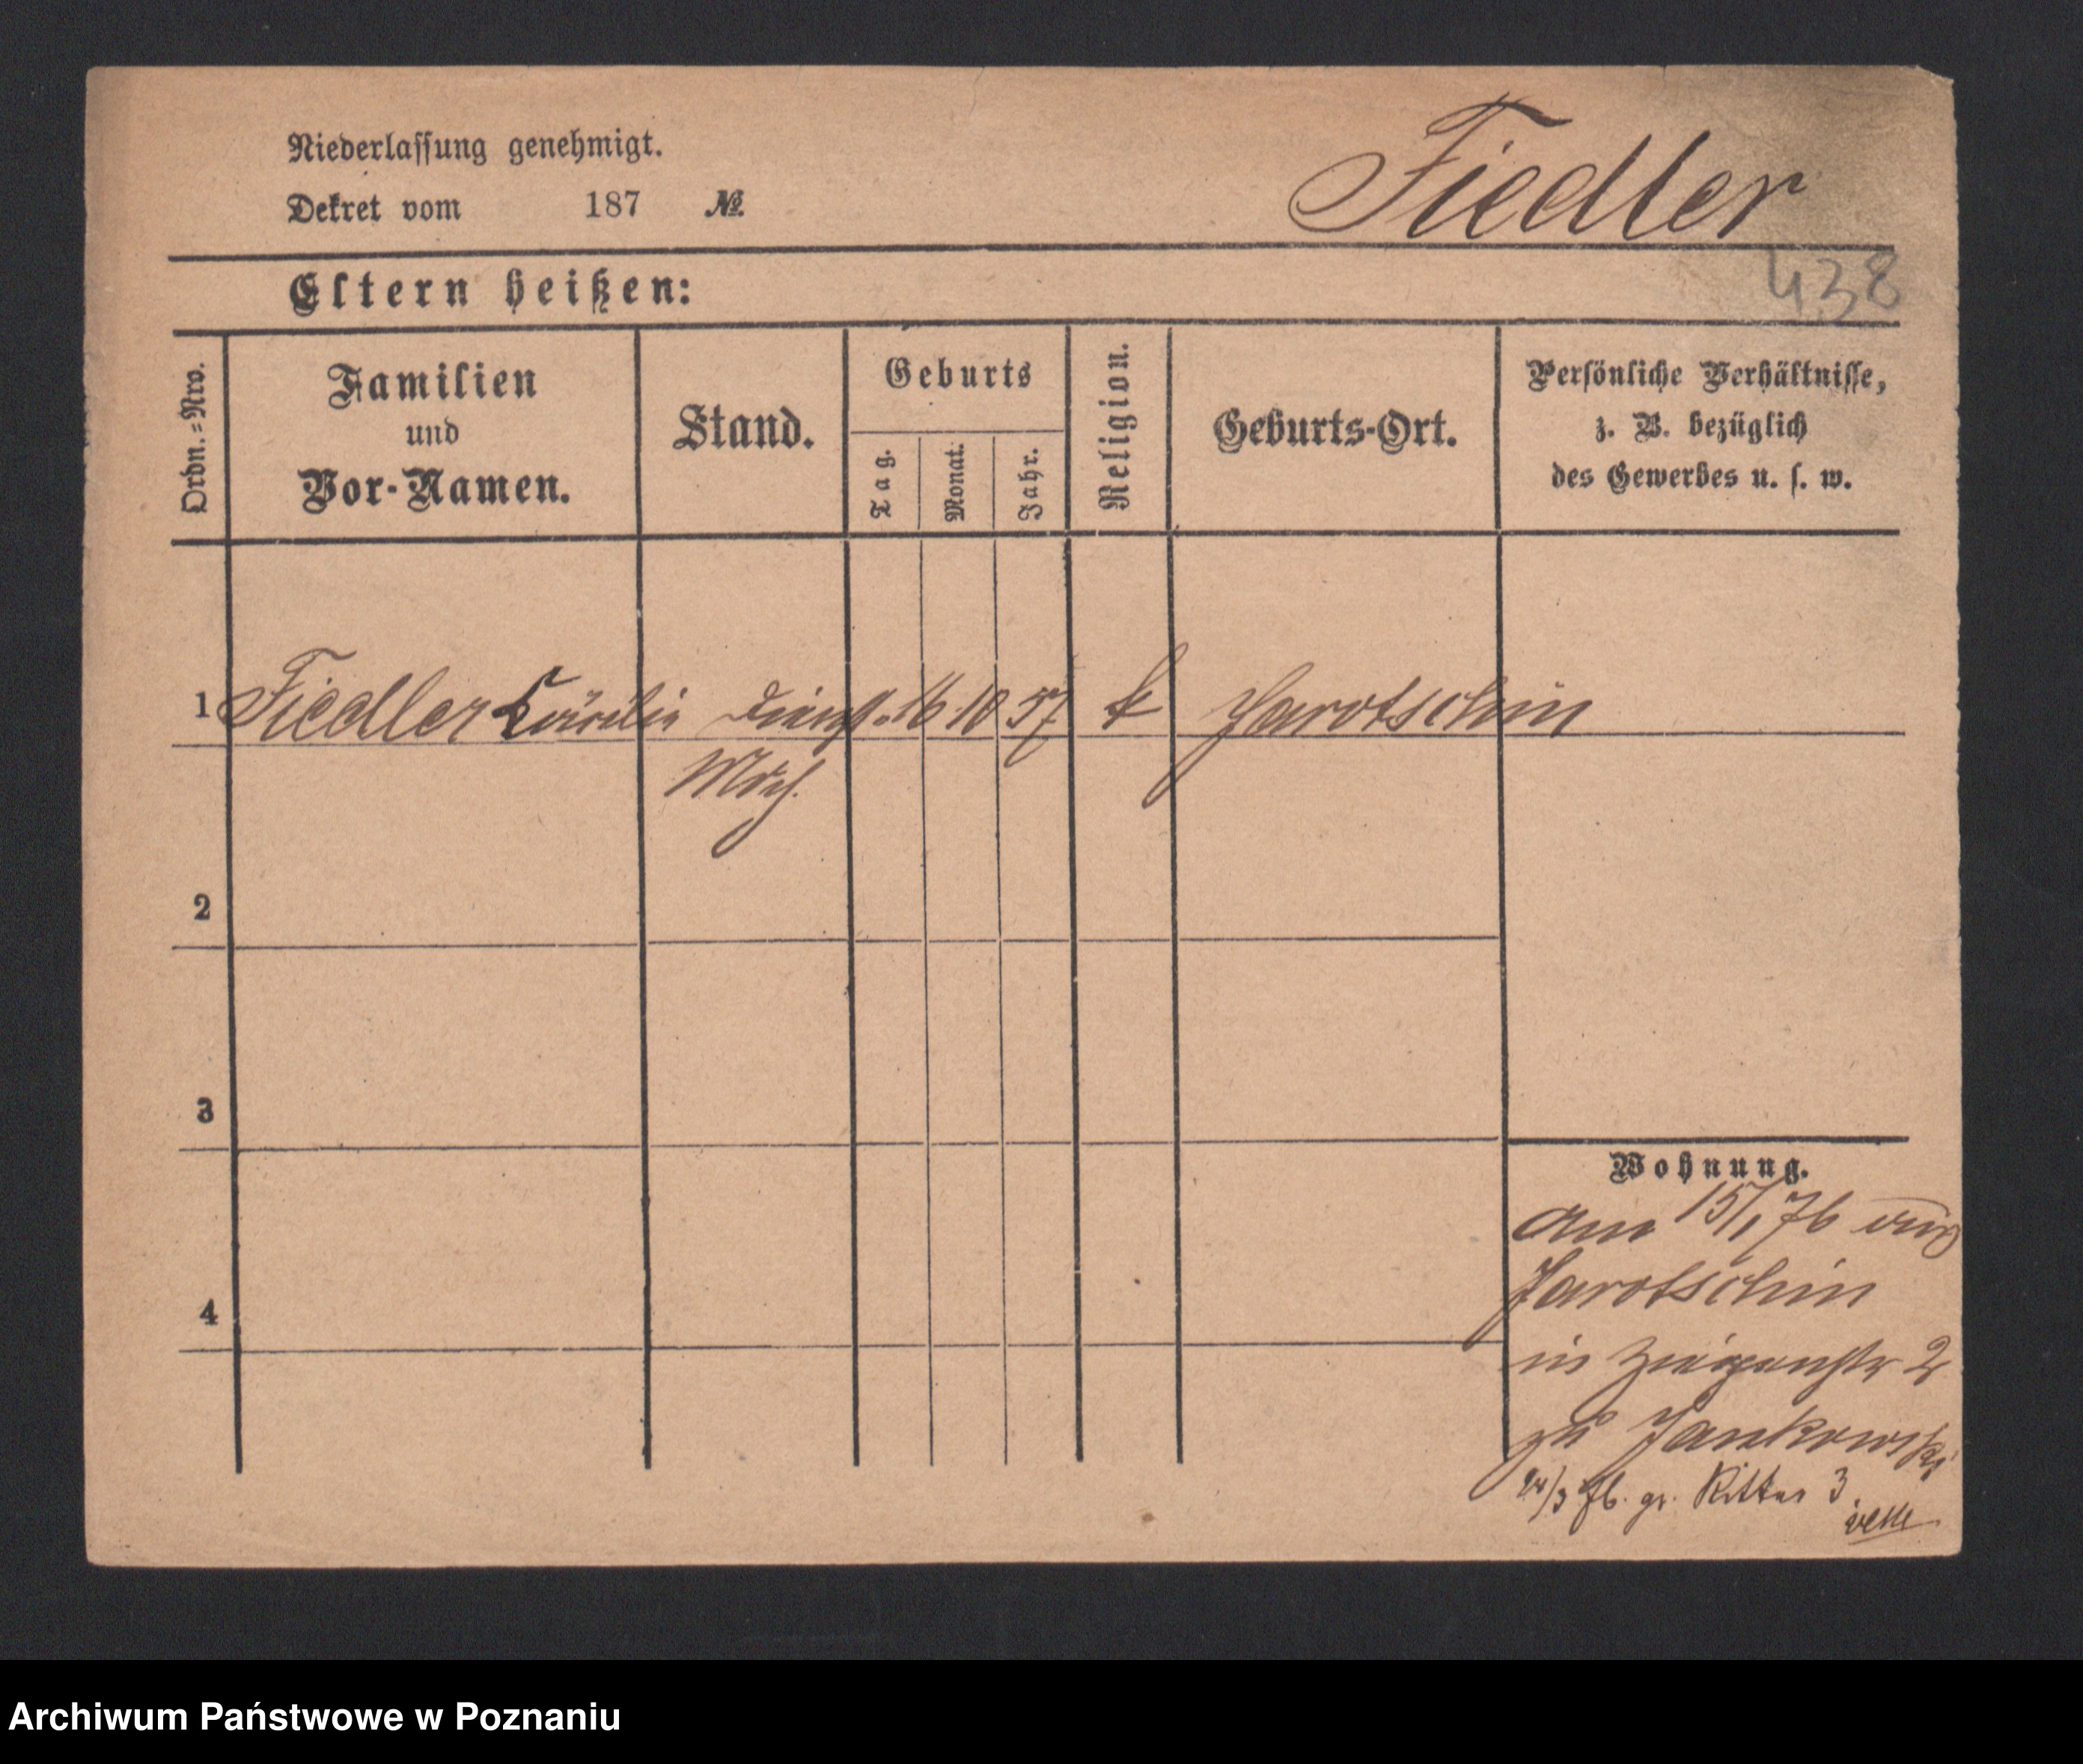 Niederlassung genehmigt.
Fiedler
Dekret vom 187 №
438
Eltern heißen:
Ordn.=Nro.
Familien
und
Vor-Namen.
Stand.
Geburts
Tag.
Monat.
Jahr.
Religion.
Geburts-Ort.
Persönliche Verhältnisse,
z. B. bezüglich
des Gewerbes u. s. w.
1 Fiedler Cäcilie Dienst- 16 10 57 k Jarotschin
2
3
4
Wohnung.
am 15/1 76 aus
Jarotschin
in Ziegenstr 2
zu Jankowski
/3 76. gr. Ritter 3
Archiwum Państwowe w Poznaniu